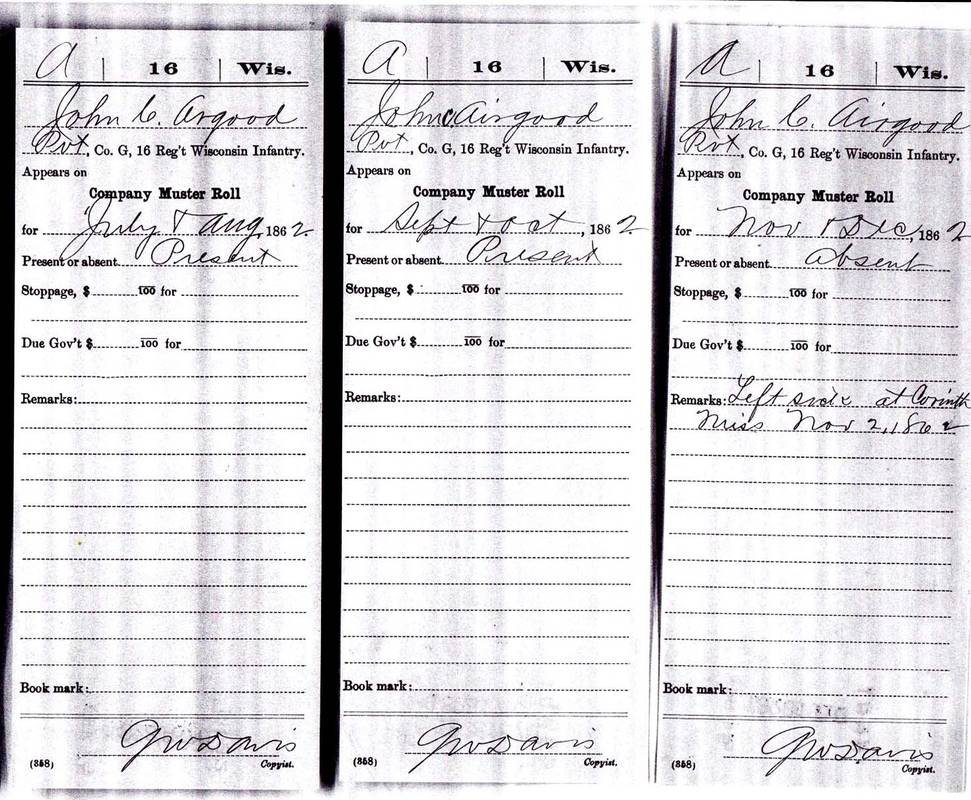 A | 16 | Wis.
John C. Argood
Pvt, Co. G, 16 Reg't Wisconsin Infantry.
Appears on
Company Muster Roll
for July & Aug, 1862
Present or absent Present
Stoppage, $ 100 for
Due Gov't $ 100 for
Remarks:
Book mark:
GW Davis
(358) Copyist.
A | 16 | Wis.
John C Airgood
Pvt, Co. G, 16 Reg't Wisconsin Infantry.
Appears on
Company Muster Roll
for Sept & Oct, 1862
Present or absent Present
Stoppage, $ 100 for
Due Gov't $ 100 for
Remarks:
Book mark:
GW Davis
(358) Copyist.
A | 16 | Wis.
John C. Airgood
Pvt, Co. G, 16 Reg't Wisconsin Infantry.
Appears on
Company Muster Roll
for Nov & Dec, 1862
Present or absent absent
Stoppage, $ 100 for
Due Gov't $ 100 for
Remarks: Left sick at Corinth
Miss Nov 2, 1862
Book mark:
GW Davis
(358) Copyist.